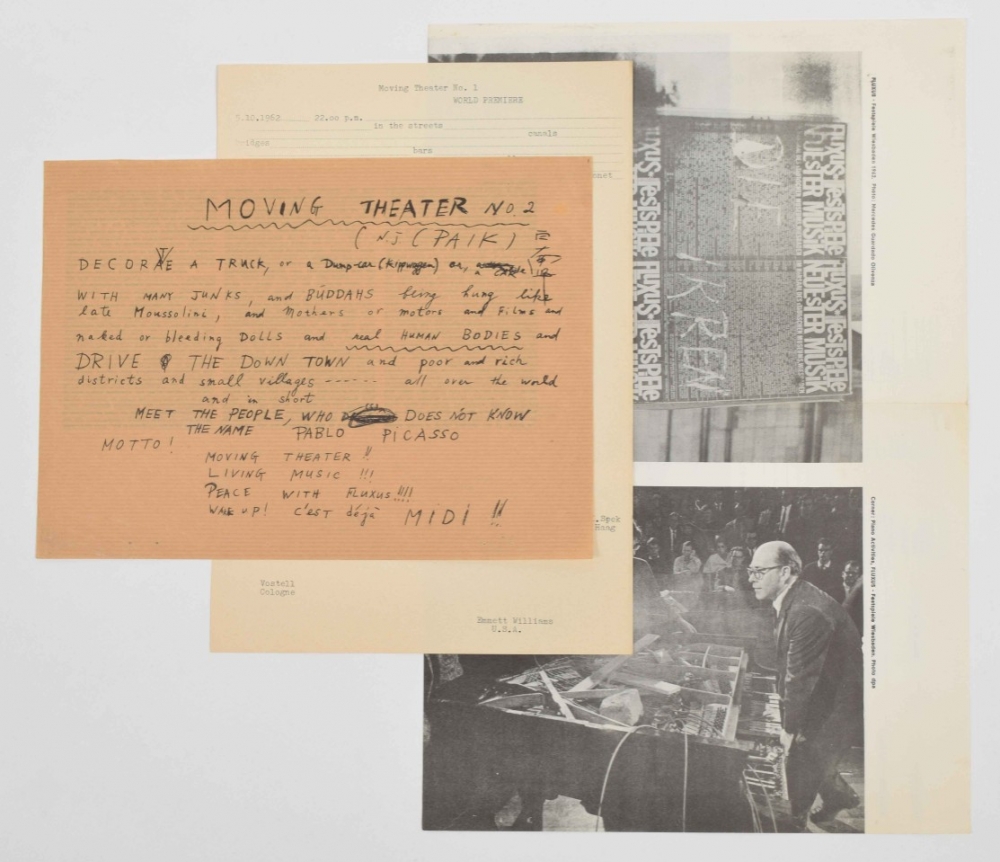 MOVING THEATER NO. 2
(N.J (PAIK)
DECORATE A TRUCK, or a Dump-car (Kippwagen) or, a
WITH MANY JUNKS, and BÜDDAHS being hung like
late Moussolini, and Mothers or motors and Films and
naked or bleeding DOLLS and real HUMAN BODIES and
DRIVE THE DOWN TOWN and poor and rich
districts and small villages ------ all over the world
and in short
MEET THE PEOPLE, WHO DOES NOT KNOW
THE NAME PABLO PICASSO
MOTTO!
MOVING THEATER !!
LIVING MUSIC !!!
PEACE WITH FLUXUS !!!!
WAKE UP! C'EST déjà MIDI !!
Moving Theater No. 1
WORLD PREMIERE
.10.1962 22.00 p.m.
in the streets
canals
ridges
bars
Vostell
Cologne
Emmett Williams
U.S.A.
FLUXUS - Festspiele Wiesbaden 1962. Photo:
FLUXUS FESTSPIELE
NEUESTER MUSIK
Corner: Piano Activities, FLUXUS - Festspiele Wiesbaden. Photo dpa